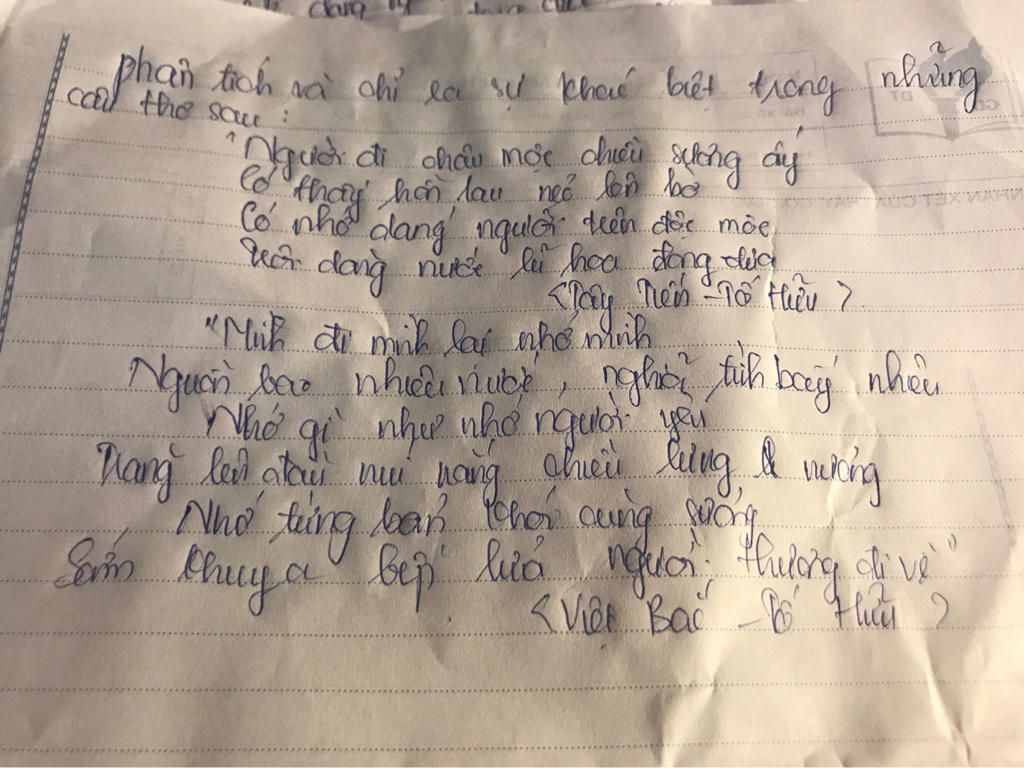 phân tích và chỉ ra sự khác biệt trong những
câu thơ sau:
"Người đi châu mộc chiều sương ấy
Có thấy hồn lau nẻo bến bờ
Có nhớ dáng người trên độc mộc
Trôi dòng nước lũ hoa đong đưa
<Tây Tiến - Tố Hữu>
"Mình đi mình lại nhớ mình
Nguồn bao nhiêu nước, nghĩa tình bấy nhiêu
Nhớ gì như nhớ người yêu
Trăng lên đầu núi nắng chiều lưng nương
Nhớ từng bản khói cùng sương
Sớm khuya bếp lửa người thương đi về"
<Việt Bắc - Tố Hữu>